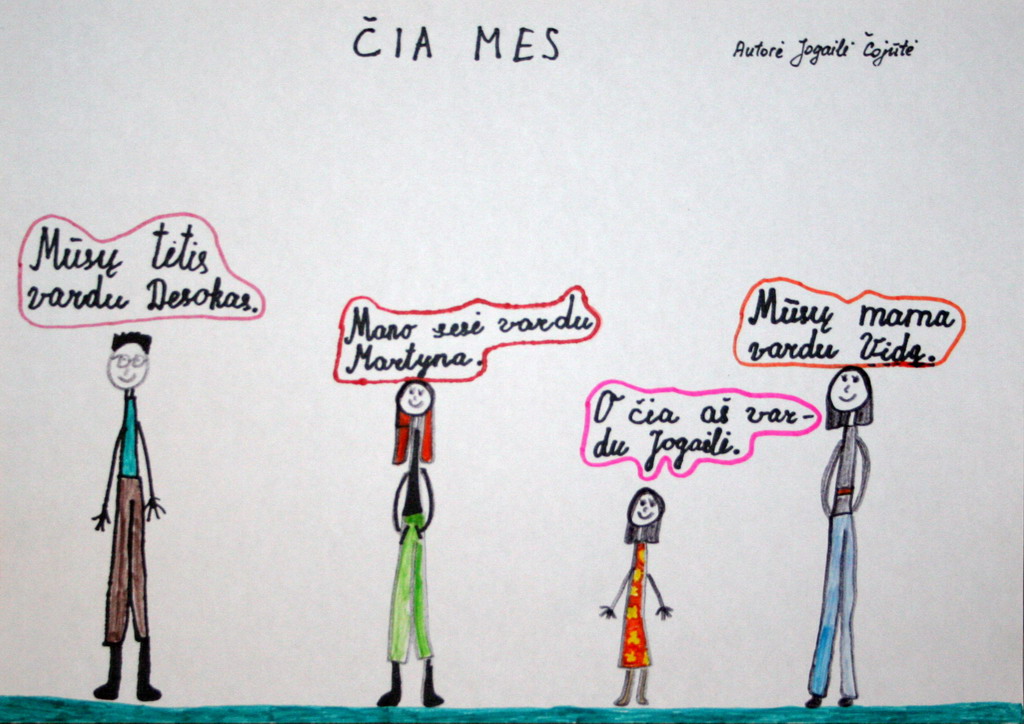 ČIA MES
Autorė Jogailė Čojūtė
Mūsų tėtis
vardu Desokas.
Mano sesė vardu
Martyna.
O čia aš var-
du Jogailė.
Mūsų mama
vardu Vida.